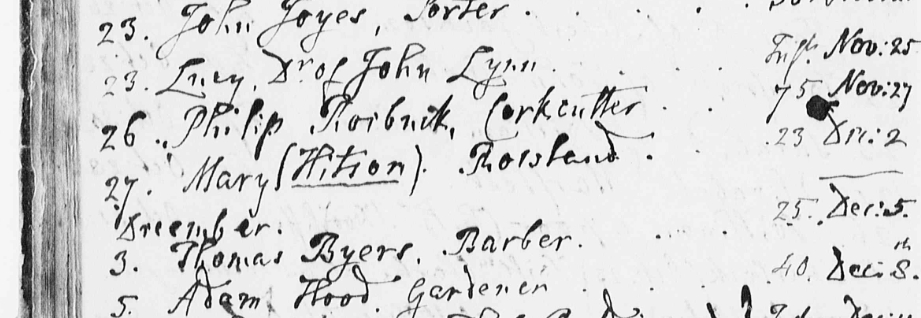 23. John Joyes, Porter.
23. Lucy, Dr of John Lynn. Inft. Nov: 25
26. Philip Roebuck, Corkcutter 75 Nov: 27
27. Mary (Hitson). Rowland. 23 Dec: 2
December.
3. Thomas Byers. Barber. 25. Dec: 5.
5. Adam Hood Gardener 40. Dec: 8th.